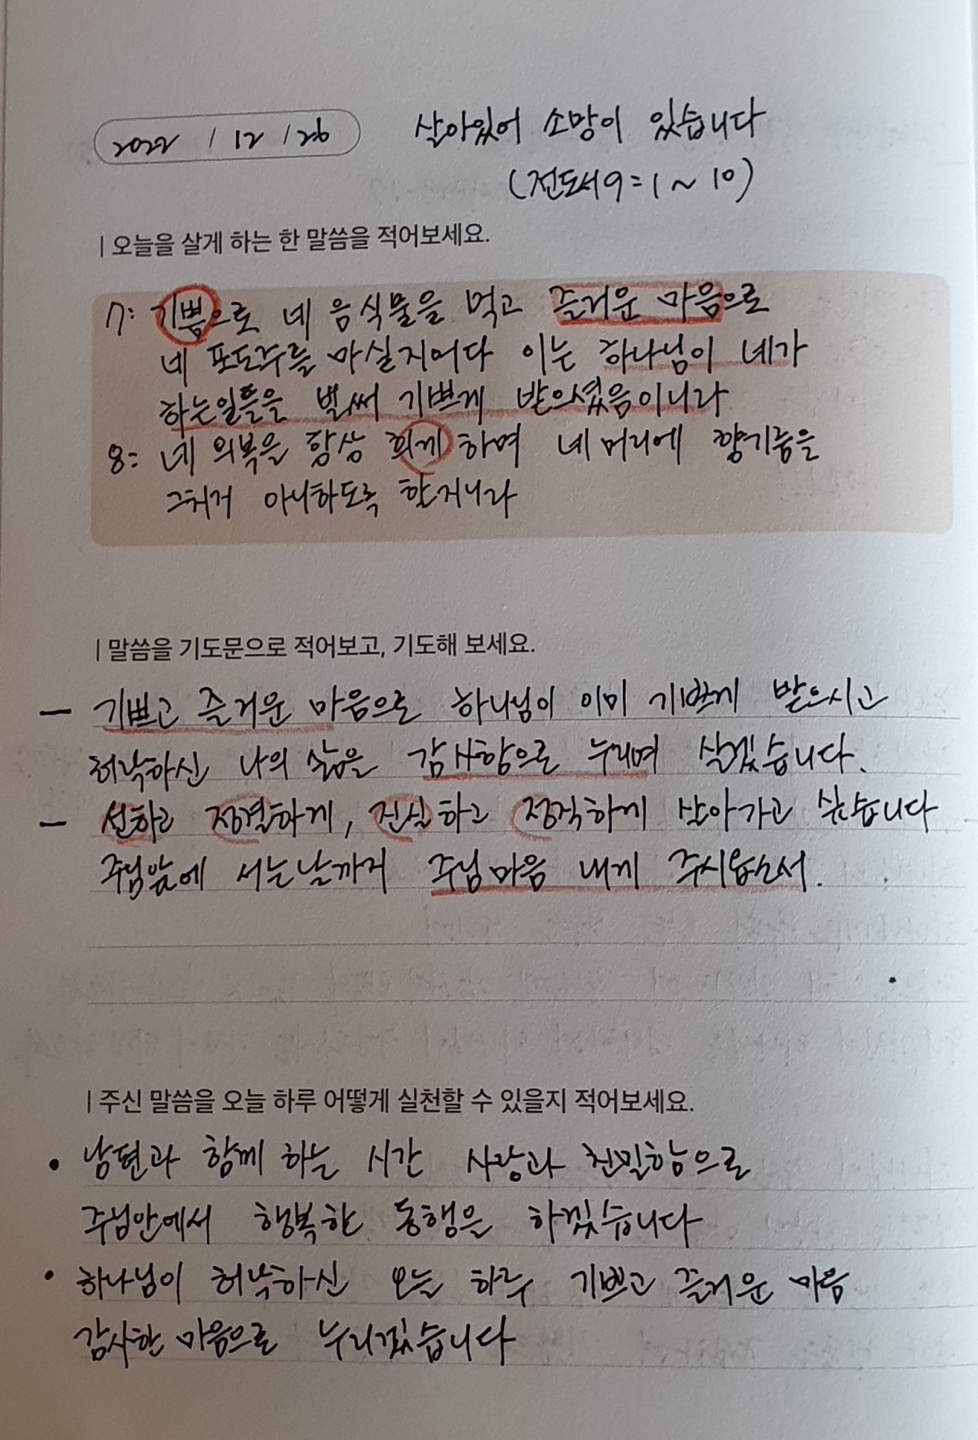 2022 / 12 / 26 살아있어 소망이 있습니다
(전도서9:1~10)
| 오늘을 살게 하는 한 말씀을 적어보세요.
7: 기쁨으로 네 음식물을 먹고 즐거운 마음으로
네 포도주를 마실지어다 이는 하나님이 네가
하는일들을 벌써 기쁘게 받으셨음이니라
8: 네 의복을 항상 희게 하며 네 머리에 향기름을
그치지 아니하도록 할지니라
| 말씀을 기도문으로 적어보고, 기도해 보세요.
– 기쁘고 즐거운 마음으로 하나님이 이미 기쁘게 받으시고
허락하신 나의 삶을 감사함으로 누리며 살겠습니다.
– 선하고 정결하게, 진실하고 정직하게 살아가고 싶습니다
주님앞에 서는날까지 주님마음 내게 주시옵소서.
| 주신 말씀을 오늘 하루 어떻게 실천할 수 있을지 적어보세요.
• 남편과 함께 하는 시간 사랑과 친밀함으로
주님안에서 행복한 동행을 하겠습니다
• 하나님이 허락하신 오늘 하루 기쁘고 즐거운 마음
감사한 마음으로 누리겠습니다